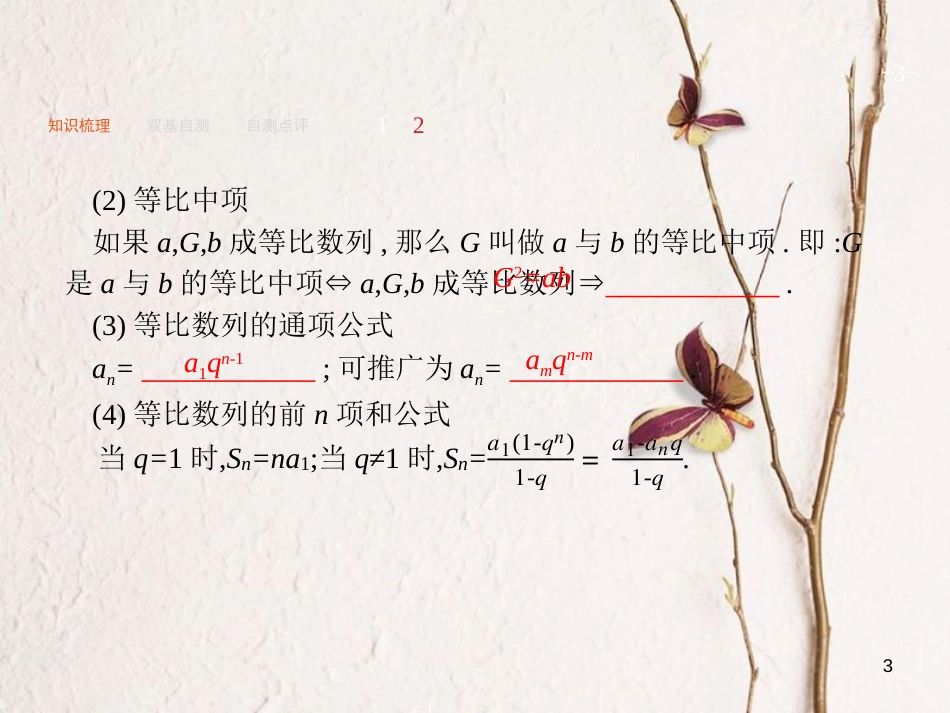 -3-
知识梳理 双基自测 自测点评 1 2
(2) 等比中项
如果 a,G,b 成等比数列 , 那么 G 叫做 a 与 b 的等比中项 . 即 :G
是 a 与 b 的等比中项⇔ a,G,b 成等比数列⇒ G²=ab .
(3) 等比数列的通项公式
aₙ= a₁qⁿ⁻¹ ; 可推广为 aₙ= aₘqⁿ⁻ᵐ .
(4) 等比数列的前 n 项和公式
当 q=1 时,Sn=na1;当 q≠1 时,Sn=a₁(1-qⁿ)/1-q = a₁-aₙq/1-q.
3